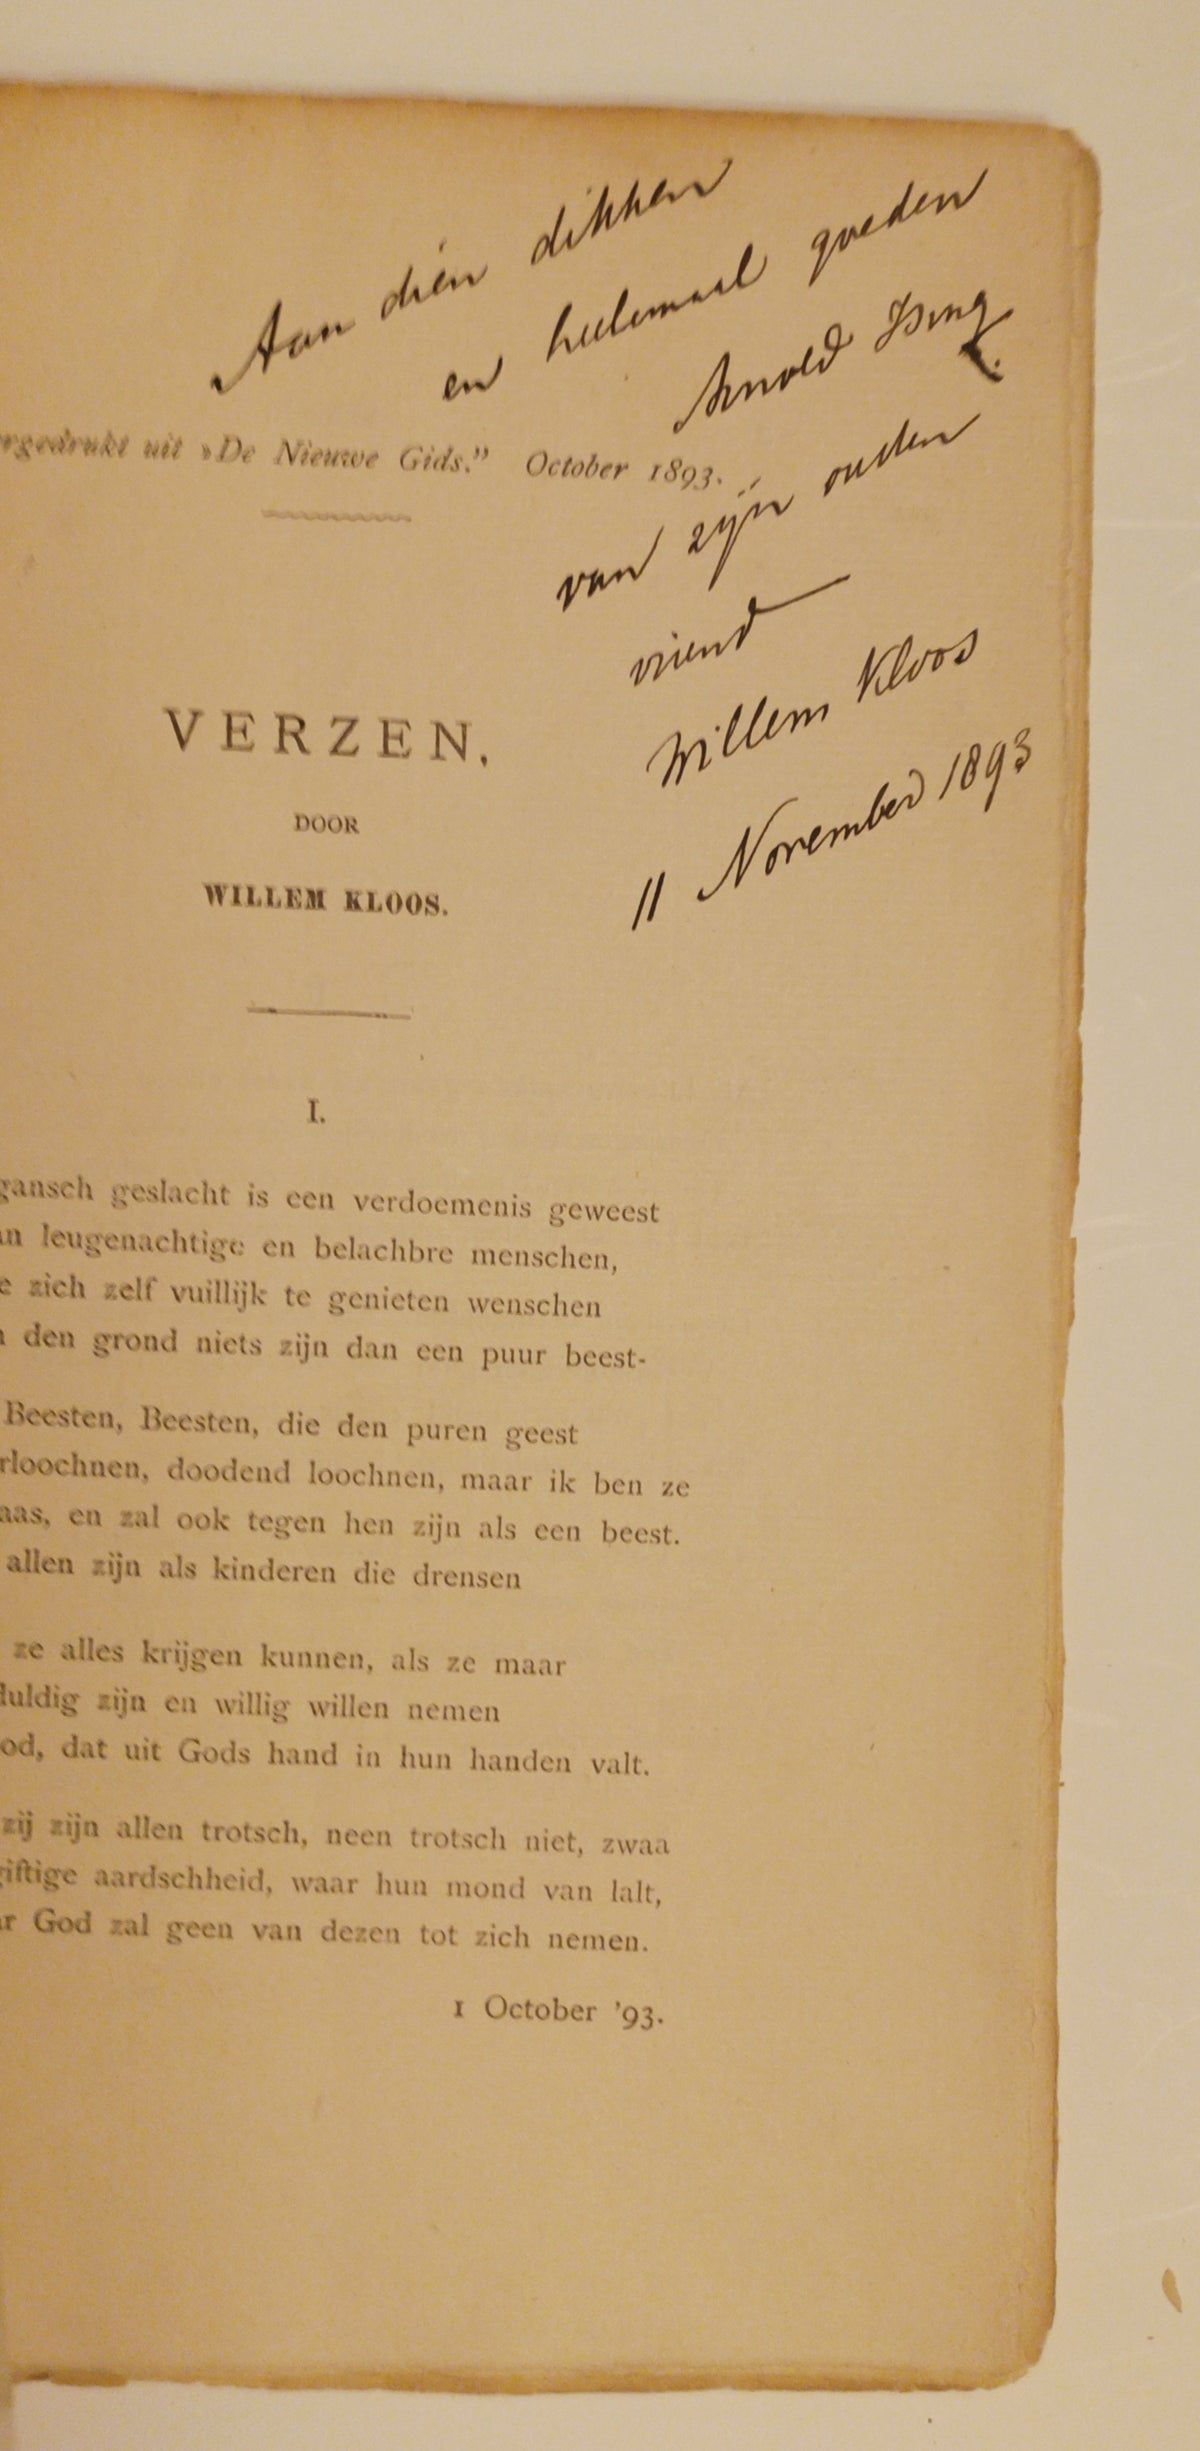 Aan dien dikken
en heelemaal goeden
Arnold Ising
van zijn ouden
vriend
Willem Kloos
11 November 1893
rgedrukt uit »De Nieuwe Gids.” October 1893.
VERZEN,
DOOR
WILLEM KLOOS.
I.
gansch geslacht is een verdoemenis geweest
an leugenachtige en belachbre menschen,
e zich zelf vuillijk te genieten wenschen
n den grond niets zijn dan een puur beest-
Beesten, Beesten, die den puren geest
rloochnen, doodend loochnen, maar ik ben ze
aas, en zal ook tegen hen zijn als een beest.
allen zijn als kinderen die drensen
ze alles krijgen kunnen, als ze maar
duldig zijn en willig willen nemen
od, dat uit Gods hand in hun handen valt.
zij zijn allen trotsch, neen trotsch niet, zwaa
giftige aardschheid, waar hun mond van lalt,
ar God zal geen van dezen tot zich nemen.
1 October ’93.